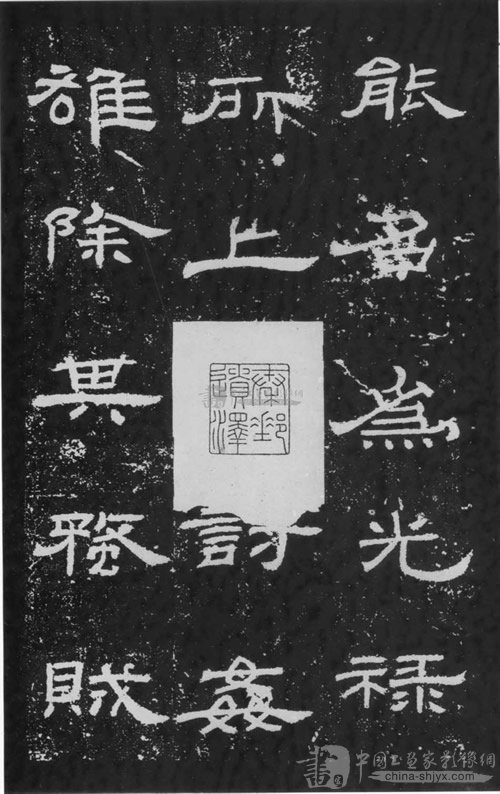 能為光祿
所上討姦
雄除其蝥賊
秦郵
遺澤
中國書畫家影像網
china-shjyx.com